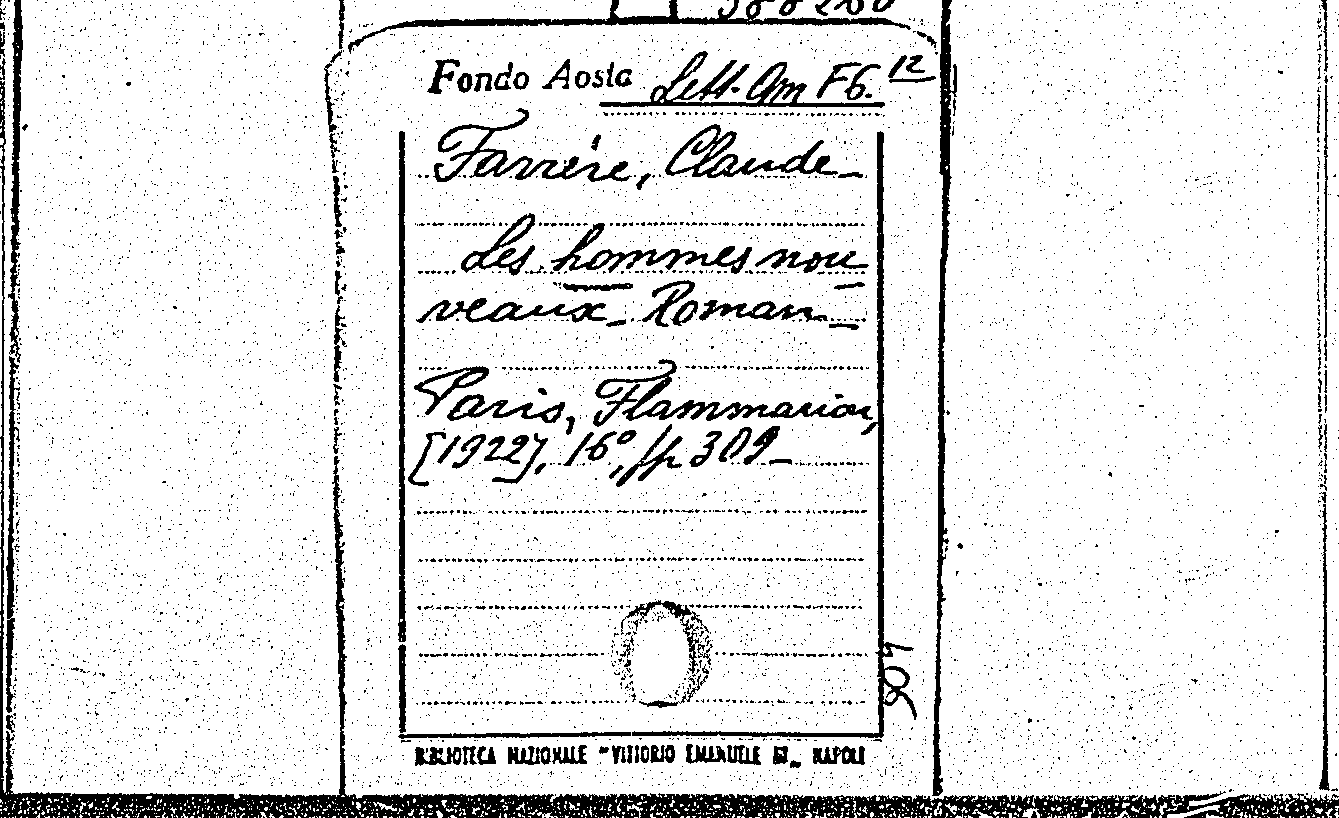 Fondo Aosta Lett. Am F6. 12
Farrère, Claude_
Les hommes nou
veaux_ Roman_
Paris, Flammarion,
[1922], 16º, pp 309_
BIBLIOTECA NAZIONALE "VITTORIO EMANUELE III„ NAPOLI